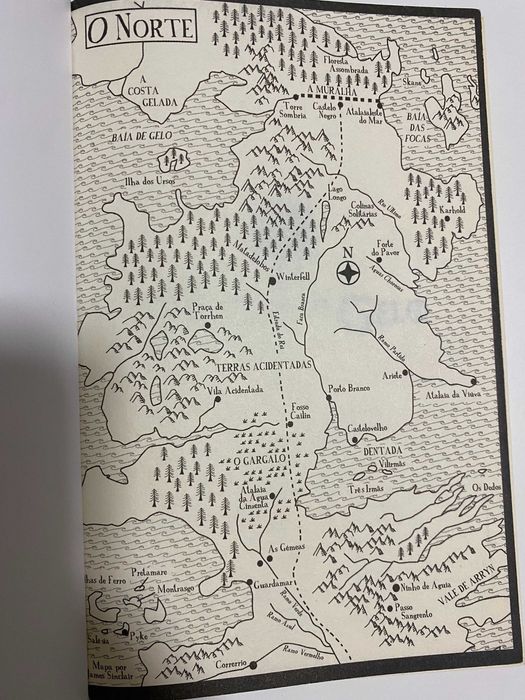 O NORTE
A
COSTA
GELADA
Floresta
Assombrada
A MURALHA
Skane
Torre
Sombria
Castelo
Negro
Atalaialeste
do Mar
BAÍA
DAS
FOCAS
BAÍA DE GELO
Ilha dos Ursos
Lago
Longo
Colinas
Solitárias
Rio Último
Karhold
N
Forte
do Pavor
Águas Chorosas
Winterfell
Faca Branca
Estrada do Rei
Praça de
Torrhen
TERRAS ACIDENTADAS
Vila Acidentada
Ariete
Atalaia da Viúva
Porto Branco
Fosso
Cailin
Castelovelho
DENTADA
O GARGALO
Três Irmãs
Os Dedos
Atalaia
da Água
Cinzenta
As Gêmeas
Guardamar
Pretamare
Montrasgo
lhas de Ferro
Pyke
Ninho de Águia
VALE DE ARRYN
Passo
Sangrento
Ramo Verde
Ramo Azul
Ramo Vermelho
Correrrio
Mapa por
James Sinclair